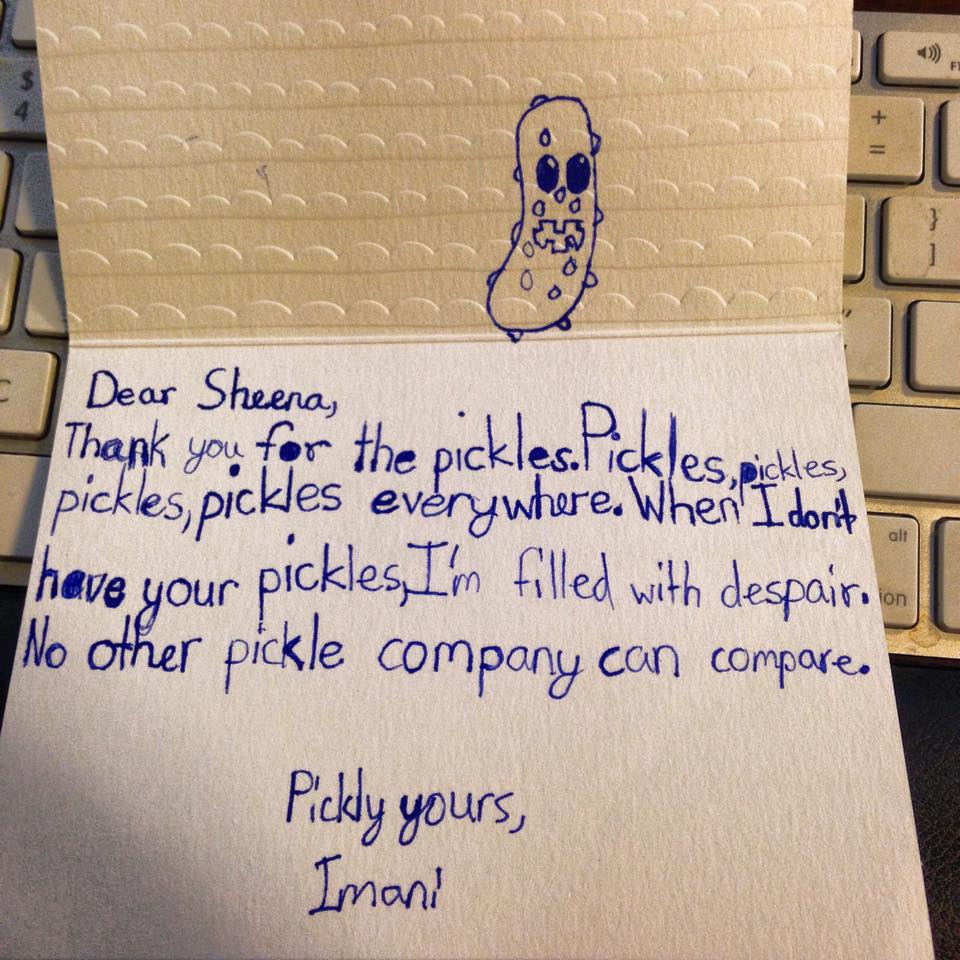 Dear Sheena,
Thank you for the pickles. Pickles, pickles,
pickles, pickles everywhere. When I don't
have your pickles, I'm filled with despair.
No other pickle company can compare.
Pickly yours,
Imani
$
4
+
=
}
]
C
alt